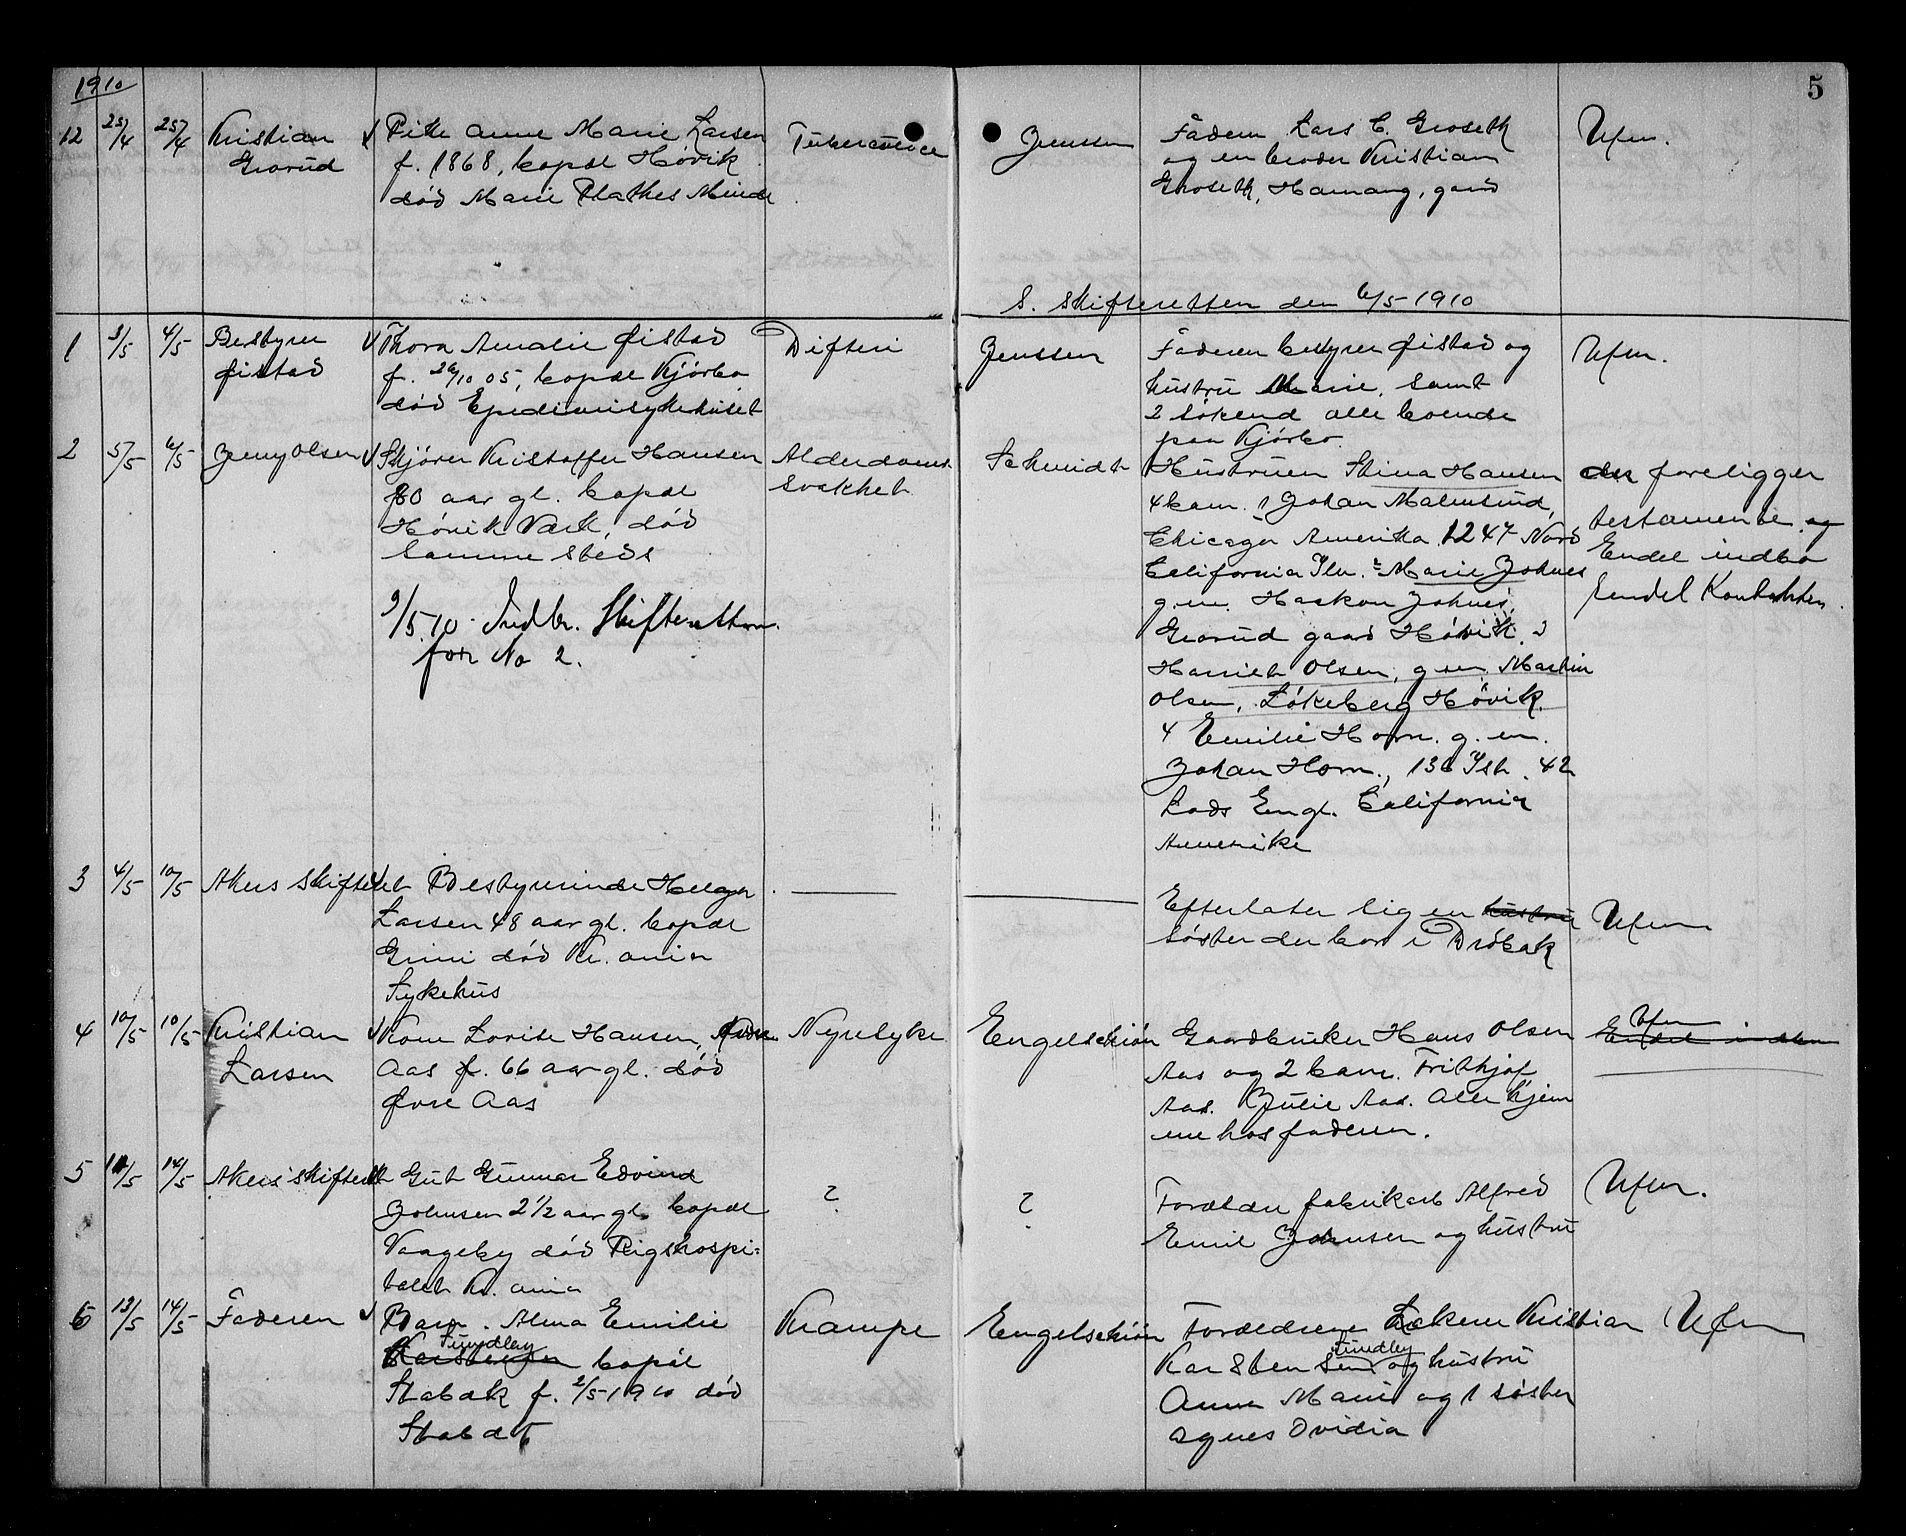 1910
5
12 25/4 25/4 Kristian Grorud
√ Pike Anne Marie Larsen
f. 1868, bopæl Høvik
død Marie Plathes Minde
Tuberculose
Jenssen
Faderen Lars C. Groseth
og en broder Kristian
Groseth, Hamang, gaard
Ufm.
S. Skifteretten den 6/5 1910
1 3/5 4/5 Bestyrer Øistad
√ Thora Amalie Øistad
f. 26/10 05, bopæl Kjørbo
død Epedemisykehuset
Difteri
Jenssen
Faderen bestyrer Øistad og
hustru Marie, samt
2 søskend alle boende
paa Kjørbo.
Ufm.
2 5/5 6/5 Jenny Olsen
√ Kristoffer Hansen
80 aar gl. bopæl
Høvik Værk, død
samme steds
9/5.10. Indb. Skifteretten.
for No 2.
Alderdoms
svakhet
Schmidt
Hustruen Stina Hansen
4 barn. 1 Johan Malmsund,
Chicago Amerika 1247 Nord
California Iln. 2 Marie Johnes
g.m. Haakon Johnes,
Grorud gaard Høvik. 3
Harriet Olsen, g.m. Martin
Olsen, Løkeberg Høvik.
4 Emilie Horn. g.m.
Johan Horn., 136 Ist. 42
Lods Engl. California
Amerika
der foreligger
testamente og
Endel indbo
endel Kontakter.
3 4/5 10/5 Akers skifteret
Bestyrerinde Helga
Larsen 48 aar gl. bopæl
Grini død Kr.ania
Sykehus
Efterlater sig en hustru
søster der bor i Drøbak
Ufm
4 10/5 10/5 Kristian Larsen
√ Kone Lovise Hansen, Øvre
Aas f. 66 aar gl. død
Øvre Aas
Nyresyke
Engelschiøn
Gaardbruker Hans Olsen
Aas og 2 barn. Frithjof
Aas. Julie Aas. Alle hjem
me hos faderen.
Ufm
Endel indbo
5 11/5 14/5 Akers skifteret
Gut Gunnar Edvind
Johnsen 2 1/2 aar gl. bopæl
Vaageby død Rigshospi-
talet Kr.ania
?
?
Forældre fabrikarb Alfred
Emil Johnsen og hustru
Ufm.
6 13/5 14/5 Faderen
√ Barn. Alma Emilie
Fundley
Karstensen bopæl
Stabæk f. 2/5 1910 død
Stabæk
Krampe
Engelschiøn
Forældrene Kristian
Fundley
Karsten sen og hustru
Anna Marie og 1 søster
Agnes Ovidia
Ufm